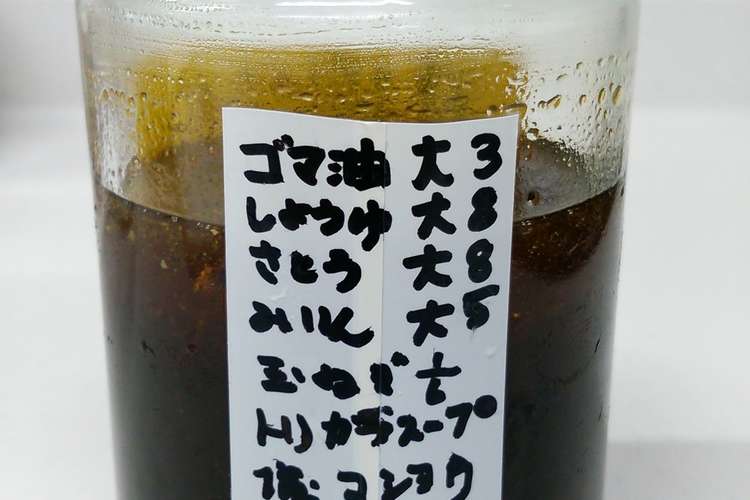 ゴマ油 大3
しょうゆ 大8
さとう 大8
みりん 大5
玉ねぎ
トリガラスープ
コショウ